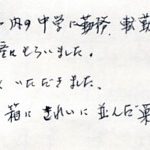 内の中学に勤務、転勤
にもらいました。
いただきました。
箱にきれいに並んだ栗